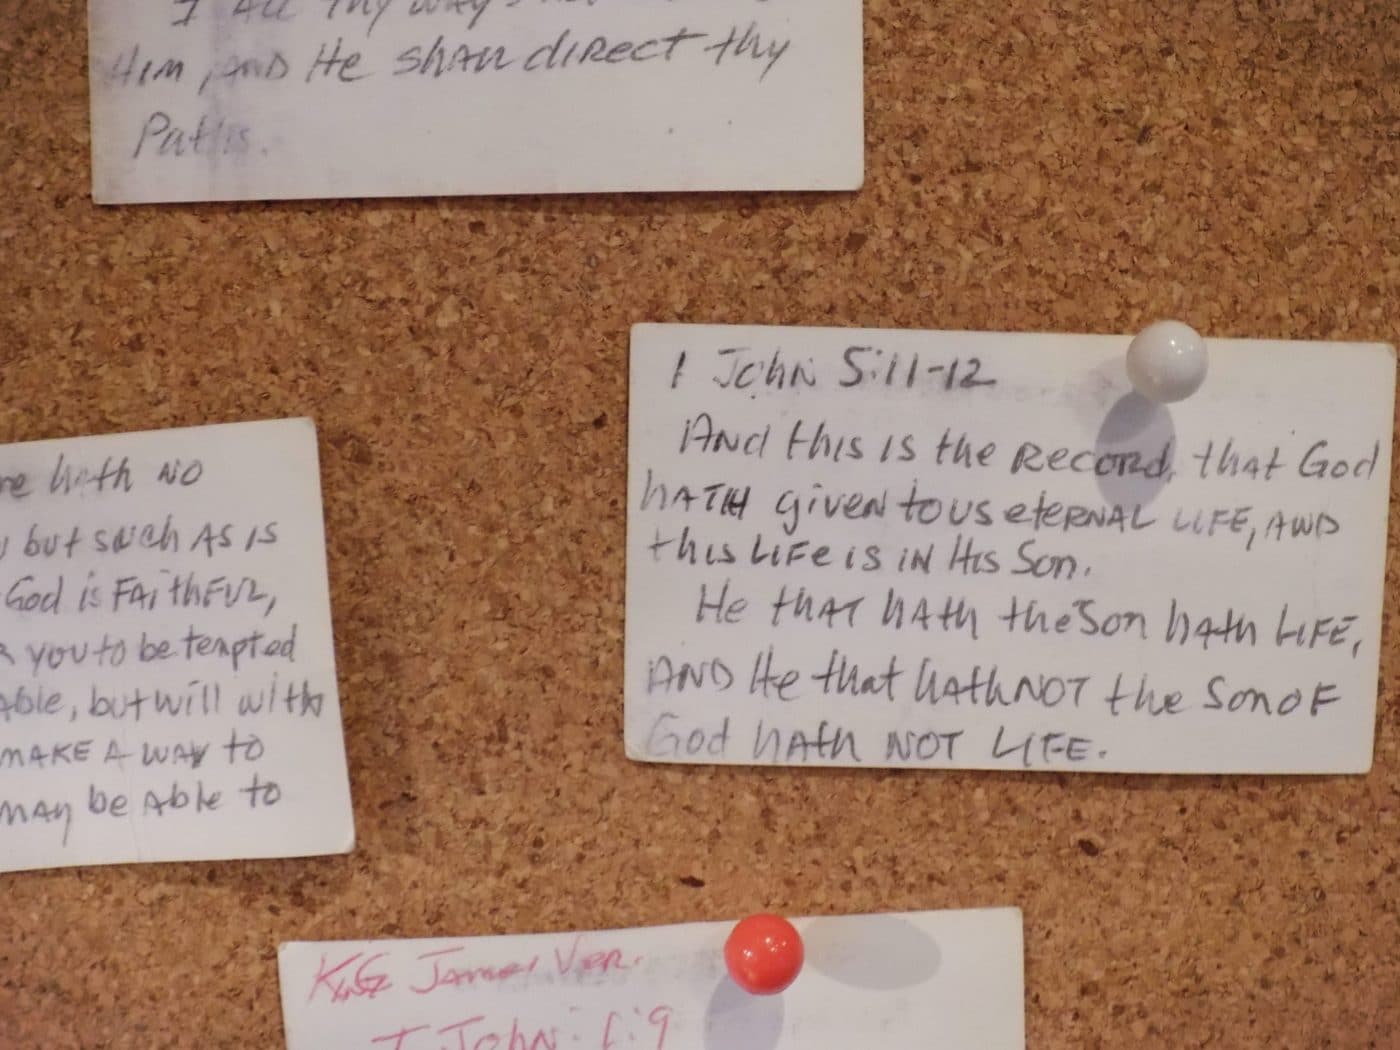 ALL thy ways
HIM, AND He shall direct thy
Paths.
1 John 5:11-12
And this is the Record, that God
hATH given to us eternal LIFE, AND
this LIFE is IN His Son.
He that hath the Son hath LIFE,
AND He that hath NOT the Son OF
God hath NOT LIFE.
hath NO
but such AS IS
God is FAithFUL,
you to be tempted
Able, but will with
MAKE A WAY to
MAY be Able to
KinG James Ver.
I John: 1:9